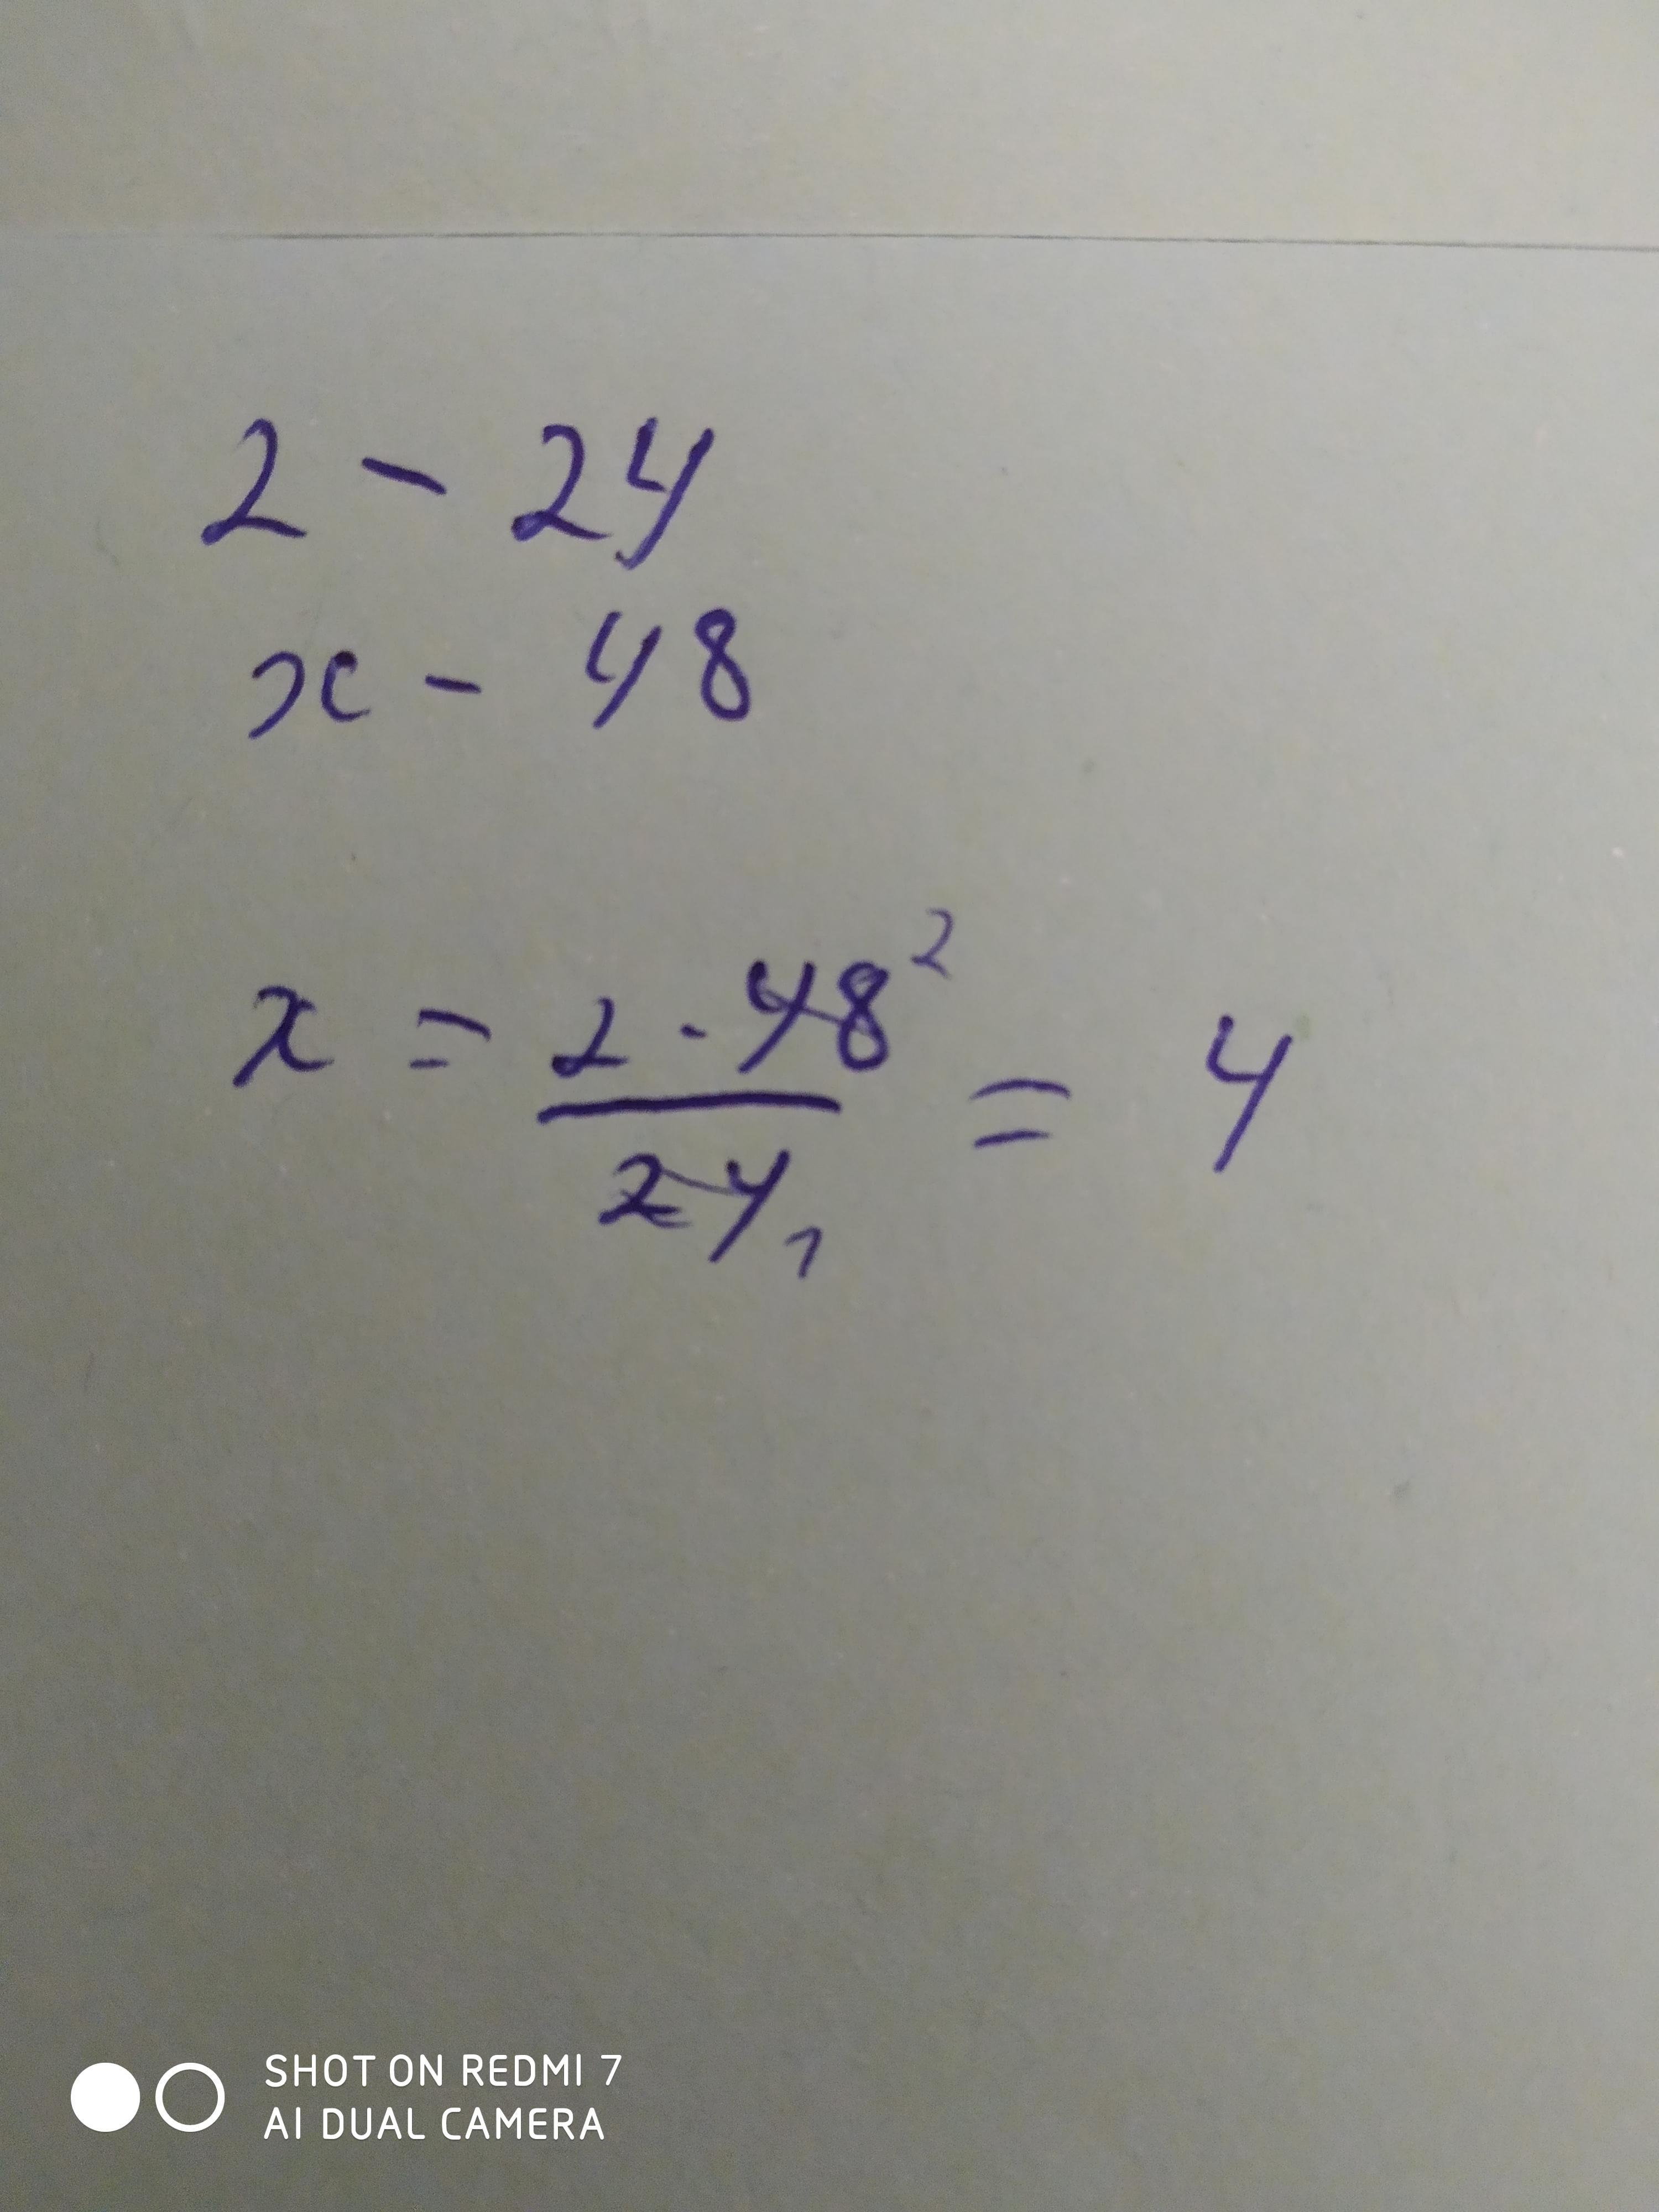 2 - 24
x - 48
x = 2 · 48² / 24₁ = 4
SHOT ON REDMI 7
AI DUAL CAMERA